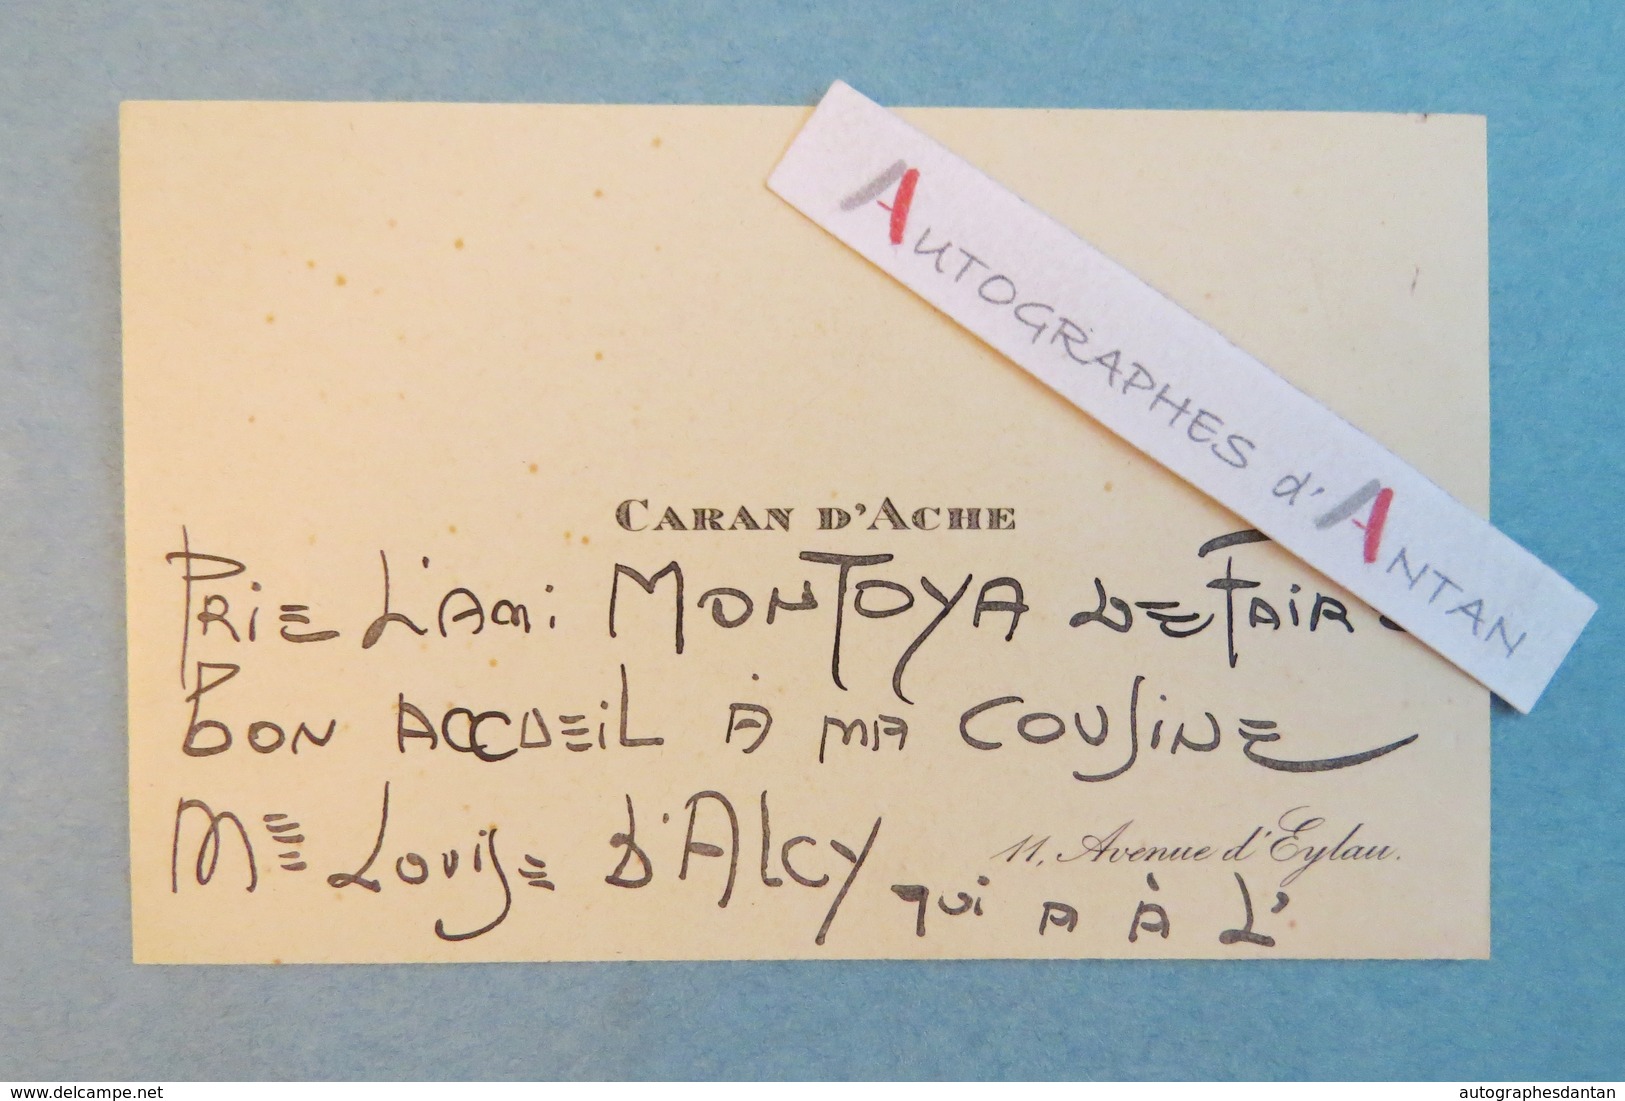 AUTOGRAPHES d'ANTAN
CARAN D'ACHE
PRIE L'AMI MONTOYA DE FAIRE
BON ACCUEIL À MA COUSINE
Mme LOUISE D'ALCY
11, Avenue d'Eylau.
QUI A À L'
© www.delcampe.net
autographesdantan